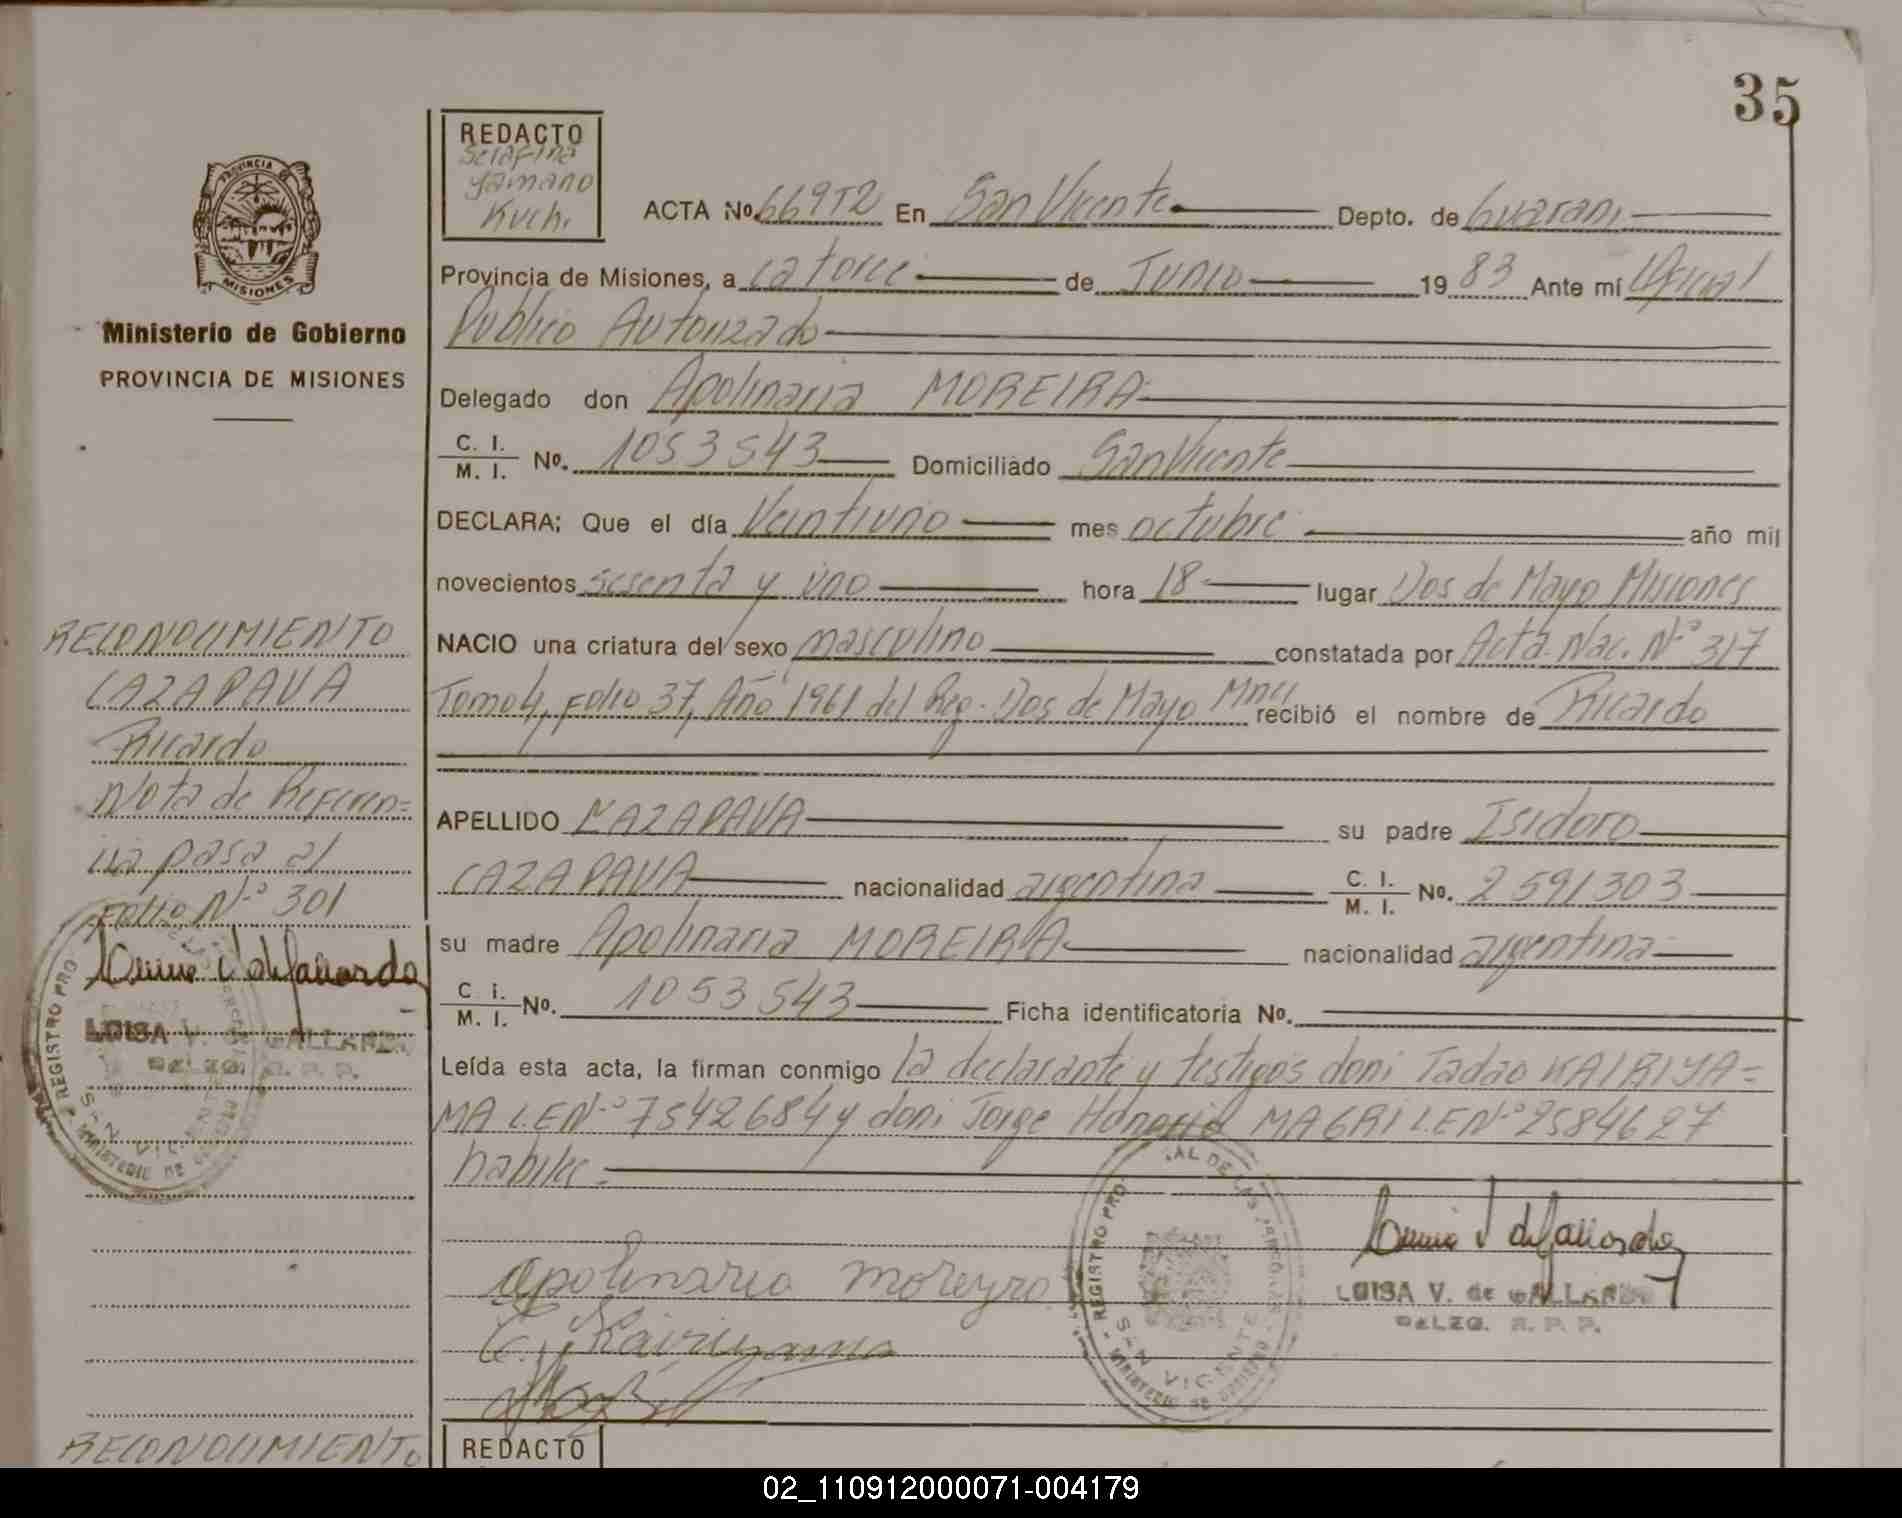 35
REDACTO
Serafina
Yamano
Kuch.
PROVINCIA
MISIONES
ACTA No. 669T2 En San Vicente Depto. de Guarani
Provincia de Misiones, a catorce de Junio 19 83 Ante mí Oficial
Publico Autorizado
Ministerio de Gobierno
PROVINCIA DE MISIONES
Delegado don Apolinaria MOREIRA
C. I.
M. I. No. 1053543 Domiciliado San Vicente
DECLARA: Que el día Veintiuno mes octubre año mil
novecientos sesenta y uno hora 18 lugar Dos de Mayo Misiones
NACIO una criatura del sexo masculino constatada por Acta. Nac. Nº 317
Tomo 4, Folio 37, Año 1961 del Reg. Dos de Mayo Mnes recibió el nombre de Ricardo
RECONOCIMIENTO
CAZAPAVA
Ricardo
Nota de Referen=
cia pasa al
Folio Nº 301
LUISA V. de GALLARDO
DELEG. R. P. P.
REGISTRO PRO
SAN VICENTE
MINISTERIO DE GOBIERNO
APELLIDO CAZAPAVA su padre Isidoro
CAZAPAVA nacionalidad argentina C. I.
M. I. No. 2591303
su madre Apolinaria MOREIRA nacionalidad argentina
C. I.
M. I. No. 1053543 Ficha identificatoria No.
Leída esta acta, la firman conmigo la declarante y testigos don: Tadao KAIRIYA=
MA L.E Nº 7542684 y don: Jorge Honorio MAGRI L.E Nº 2584627
habiles.
Apolinaria moreyra
T. Kairiyama
REGISTRO PRO
AL DE LAS PERSONAS
SAN VICENTE
MINISTERIO DE GOBIERNO
LUISA V. de GALLARDO
DELEG. R. P. P.
RECONOCIMIENTO
REDACTO
02_110912000071-004179